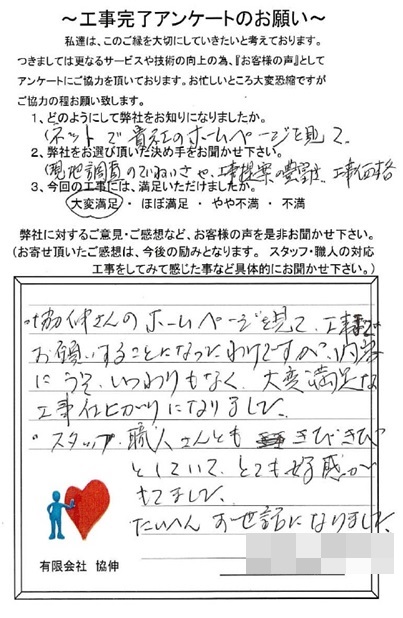 ～工事完了アンケートのお願い～
私達は、このご縁を大切にしていきたいと考えております。
つきましては更なるサービスや技術の向上の為、『お客様の声』として
アンケートにご協力を頂いております。お忙しいところ大変恐縮ですが
ご協力の程お願い致します。
1、どのようにして弊社をお知りになりましたか。
(ネットで貴社のホームページを見て。
2、弊社をお選び頂いた決め手をお聞かせ下さい。
(現地調査のていねいさや、工事提案の豊富さ、工事価格
3、今回の工事には、満足いただけましたか。
大変満足・ほぼ満足・やや不満・不満
弊社に対するご意見・ご感想など、お客様の声を是非お聞かせ下さい。
(お寄せ頂いたご感想は、今後の励みとなります。スタッフ・職人の対応
工事をしてみて感じた事など具体的にお聞かせ下さい。)
・協伸さんのホームページを見て、工事を
お願いすることになったわけですが、内容
にうそ、いつわりもなく、大変満足な
工事仕上がりになりました。
・スタッフ、職人さんとも きびきび
としていて、とても好感が
もてました。
たいへんお世話になりました
有限会社 協伸